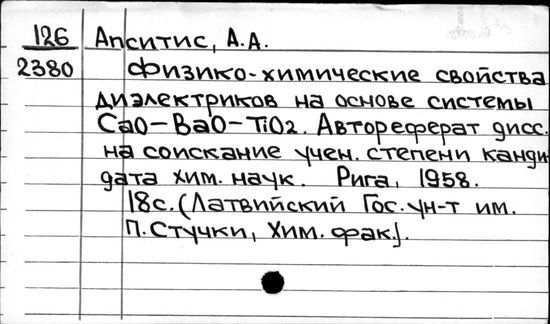 126 Апситис, А.А.
2380 Физико-химические свойства
диэлектриков на основе системы
CaO-BaO-TiO2. Автореферат дисс.
на соискание учен. степени канди-
дата хим. наук. Рига, 1958.
18с. (Латвийский Гос. ун-т им.
П. Стучки, Хим. фак.).